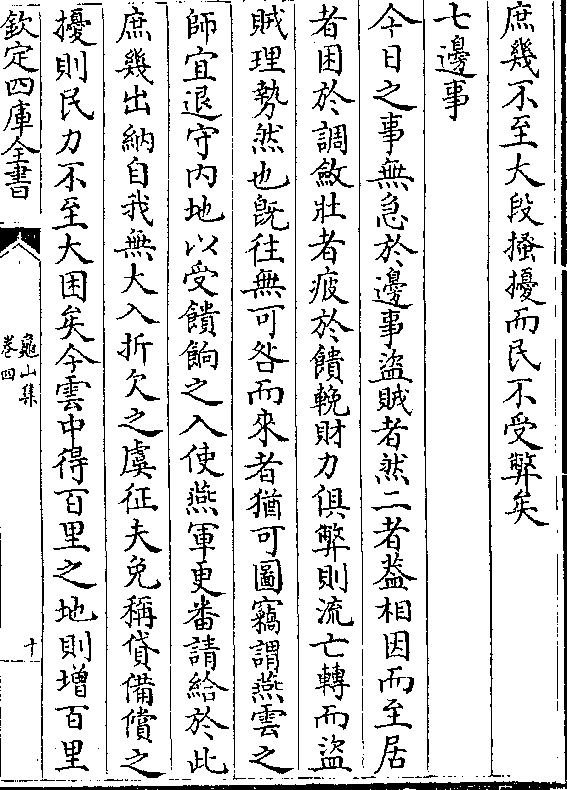 庶幾不至大段搔擾而民不受弊矣
七邊事
今日之事無急於邊事盜賊者然二者葢相因而至居
者困於調斂壯者疲於饋輓財力俱弊則流亡轉而盜
賊理勢然也旣往無可咎而來者猶可圖竊謂燕雲之
師宜退守内地以受饋餉之入使燕軍更番請給於此
庶幾出納自我無大入折欠之虞征夫免稱貸備償之
擾則民力不至大困矣今雲中得百里之地則增百里
欽定四庫全書
龜山集
卷四
十